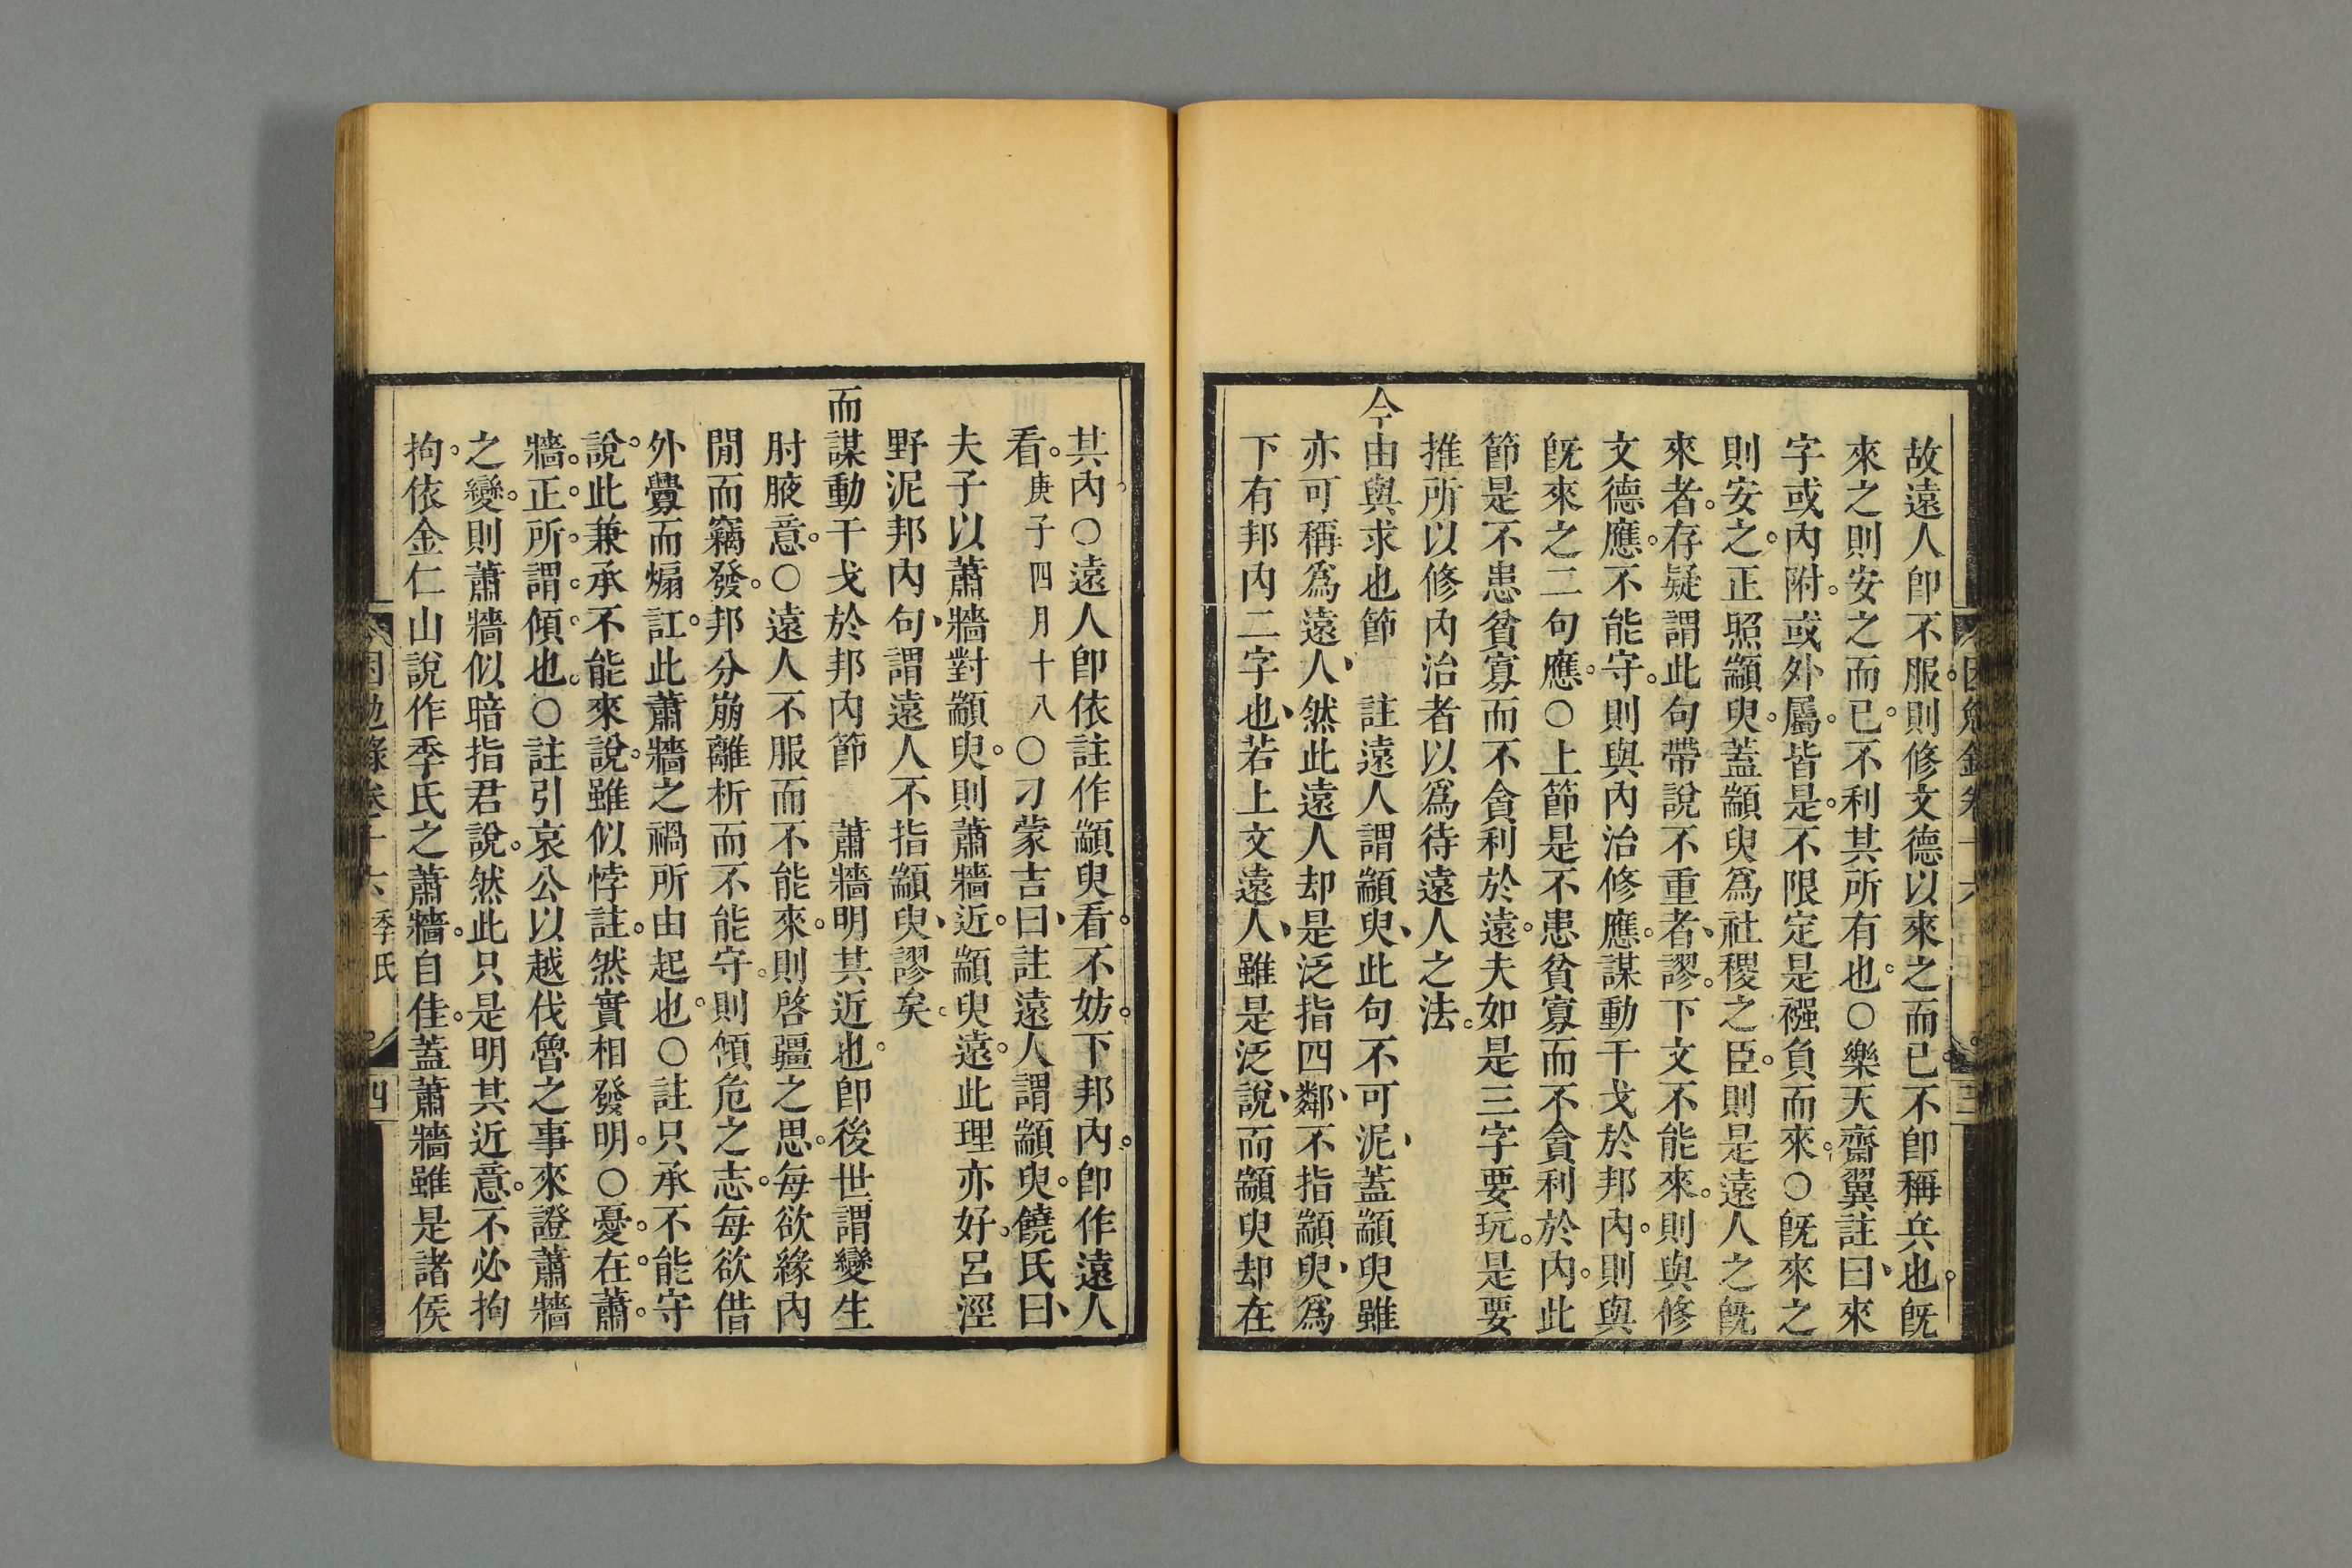 故遠人卽不服則修文德以來之而已不卽稱兵也旣
來之則安之而已不利其所有也○樂天齋翼註曰來
字或內附或外屬皆是不限定是襁負而來○旣來之
則安之正照顓臾蓋顓臾爲社稷之臣則是遠人之旣
來者存疑謂此句帶說不重者謬下文不能來則與修
文德應不能守則與內治修應謀動干戈於邦內則與
旣來之二句應○上節是不患貧寡而不貪利於內此
節是不患貧寡而不貪利於遠夫如是三字要玩是要
推所以修內治者以爲待遠人之法
今由與求也節　註遠人謂顓臾此句不可泥蓋顓臾雖
亦可稱爲遠人然此遠人却是泛指四鄰不指顓臾爲
下有邦內二字也若上文遠人雖是泛說而顓臾却在
其內○遠人卽依註作顓臾看不妨下邦內卽作遠人
看庚子四月十八○刁蒙吉曰註遠人謂顓臾饒氏曰
夫子以蕭牆對顓臾則蕭牆近顓臾遠此理亦好呂涇
野泥邦內句謂遠人不指顓臾謬矣
而謀動干戈於邦內節　蕭牆明其近也卽後世謂變生
肘腋意○遠人不服而不能來則啓疆之思每欲緣內
閒而竊發邦分崩離析而不能守則傾危之志每欲借
外釁而煽訌此蕭牆之禍所由起也○註只承不能守
說此兼承不能來說雖似悖註然實相發明○憂在蕭
牆正所謂傾也○註引哀公以越伐魯之事來證蕭牆
之變則蕭牆似暗指君說然此只是明其近意不必拘
拘依金仁山說作季氏之蕭牆自佳蓋蕭牆雖是諸侯
困勉錄卷十六 季氏 四